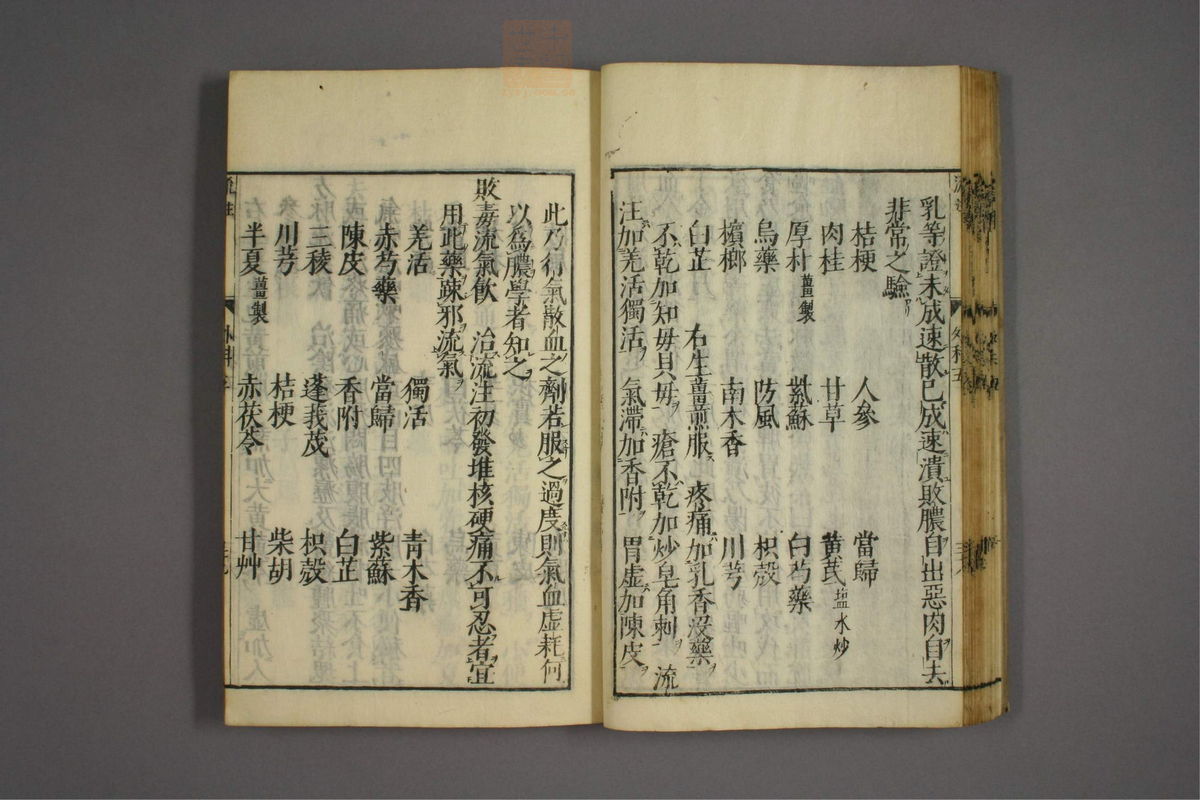 乳等證未成速散已成速潰敗膿自出惡肉自去
非常之驗
桔梗 人參 當歸
肉桂 甘草 黄芪塩水炒
厚朴薑製 紫蘇 白芍藥
烏藥 防風 枳殼
檳榔 南木香 川芎
白芷 右生薑煎服 疼痛加乳香没藥
不乾加知毋貝毋 瘡不乾加炒皂角刺 流
汪加羌活獨活 氣滯加香附 胃虚加陳皮
此乃行氣散血之劑若服之過度則氣血虚耗何
以爲膿學者知之
敗毒流氣飲 治流注初發堆核硬痛不可忍者宜
用此藥踈邪流氣
羌活 獨活 青木香
赤芍藥 當歸 紫蘇
陳皮 香附 白芷
三稜 蓬莪茂 枳殼
川芎 桔梗 柴胡
半夏薑製 赤茯苓 甘艸
外科